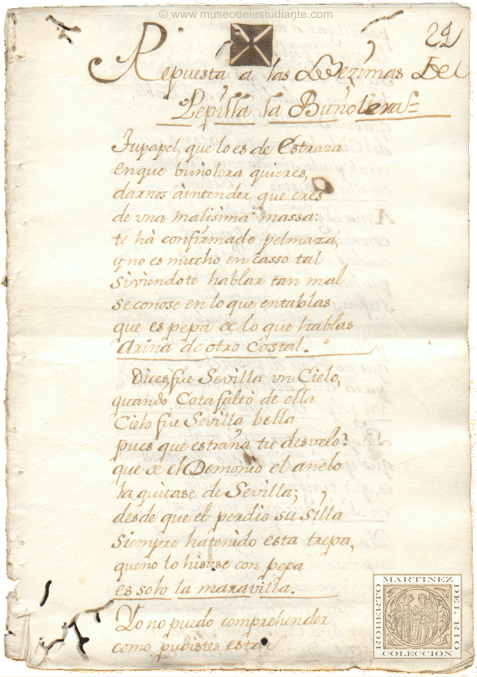 © www.museodelestudiante.com
29
Repuesta a las Dezimas Del
Pepilla la Buñolera=
Tu papel, que lo es de Estraza
en que buñolera quieres,
darnos à entender que eres
de vna malisima massa:
te hà confirmado pelmaza,
y no es mucho en casso tal
si viendote hablar tan mal
se conose en lo que entablas
que es pepa de lo que hablas
Arina de otro Costal.
Dices fue Sevilla vn Cielo,
quando Cota faltò de ella
Cielo fue Sevilla bella
pues que estraña tu desvelo?
que de el Demonio el anelo
la quitase de Sevilla;
desde que el perdio su silla
siempre ha tenido esta trepa,
que no lo hisese con pepa
es solo la maravilla.
Yo no puedo comprehender
como pudistes esta
ROBERTO MARTINEZ DEL RIO
COLECCION